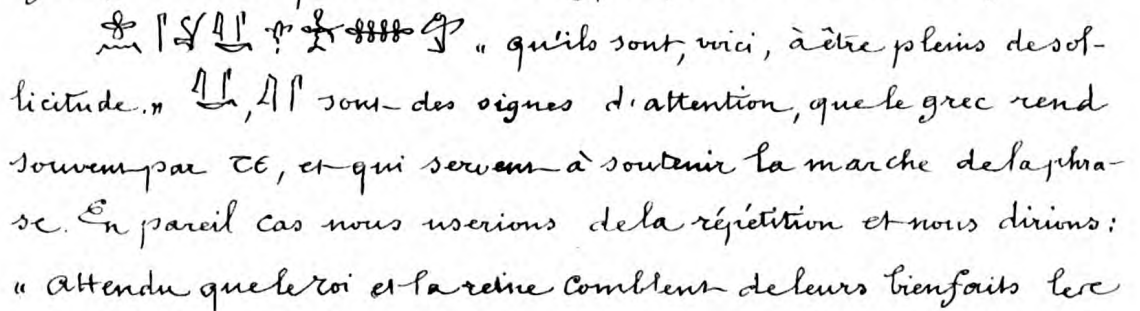 « qu'ils sont, voici, à être pleins de sol-
licitude. » , sont des signes d'attention, que le grec rend
souvent par τε, et qui servent à soutenir la marche de la phra-
se. En pareil cas nous userions de la répétition et nous dirions :
« Attendu que le roi et la reine comblent de leurs bienfaits le